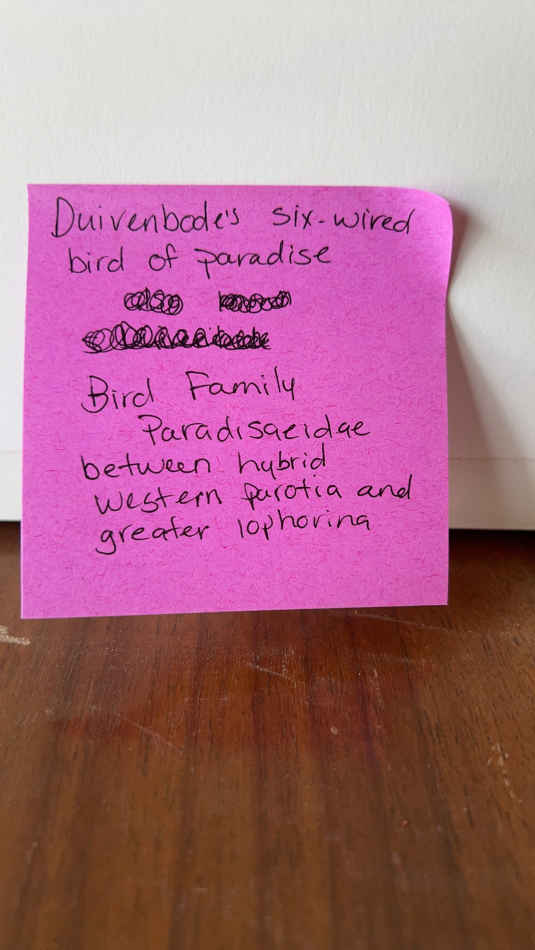 Duivenbode's six-wired
bird of paradise
Bird Family
Paradisaeidae
between hybrid
western parotia and
greater lophorina